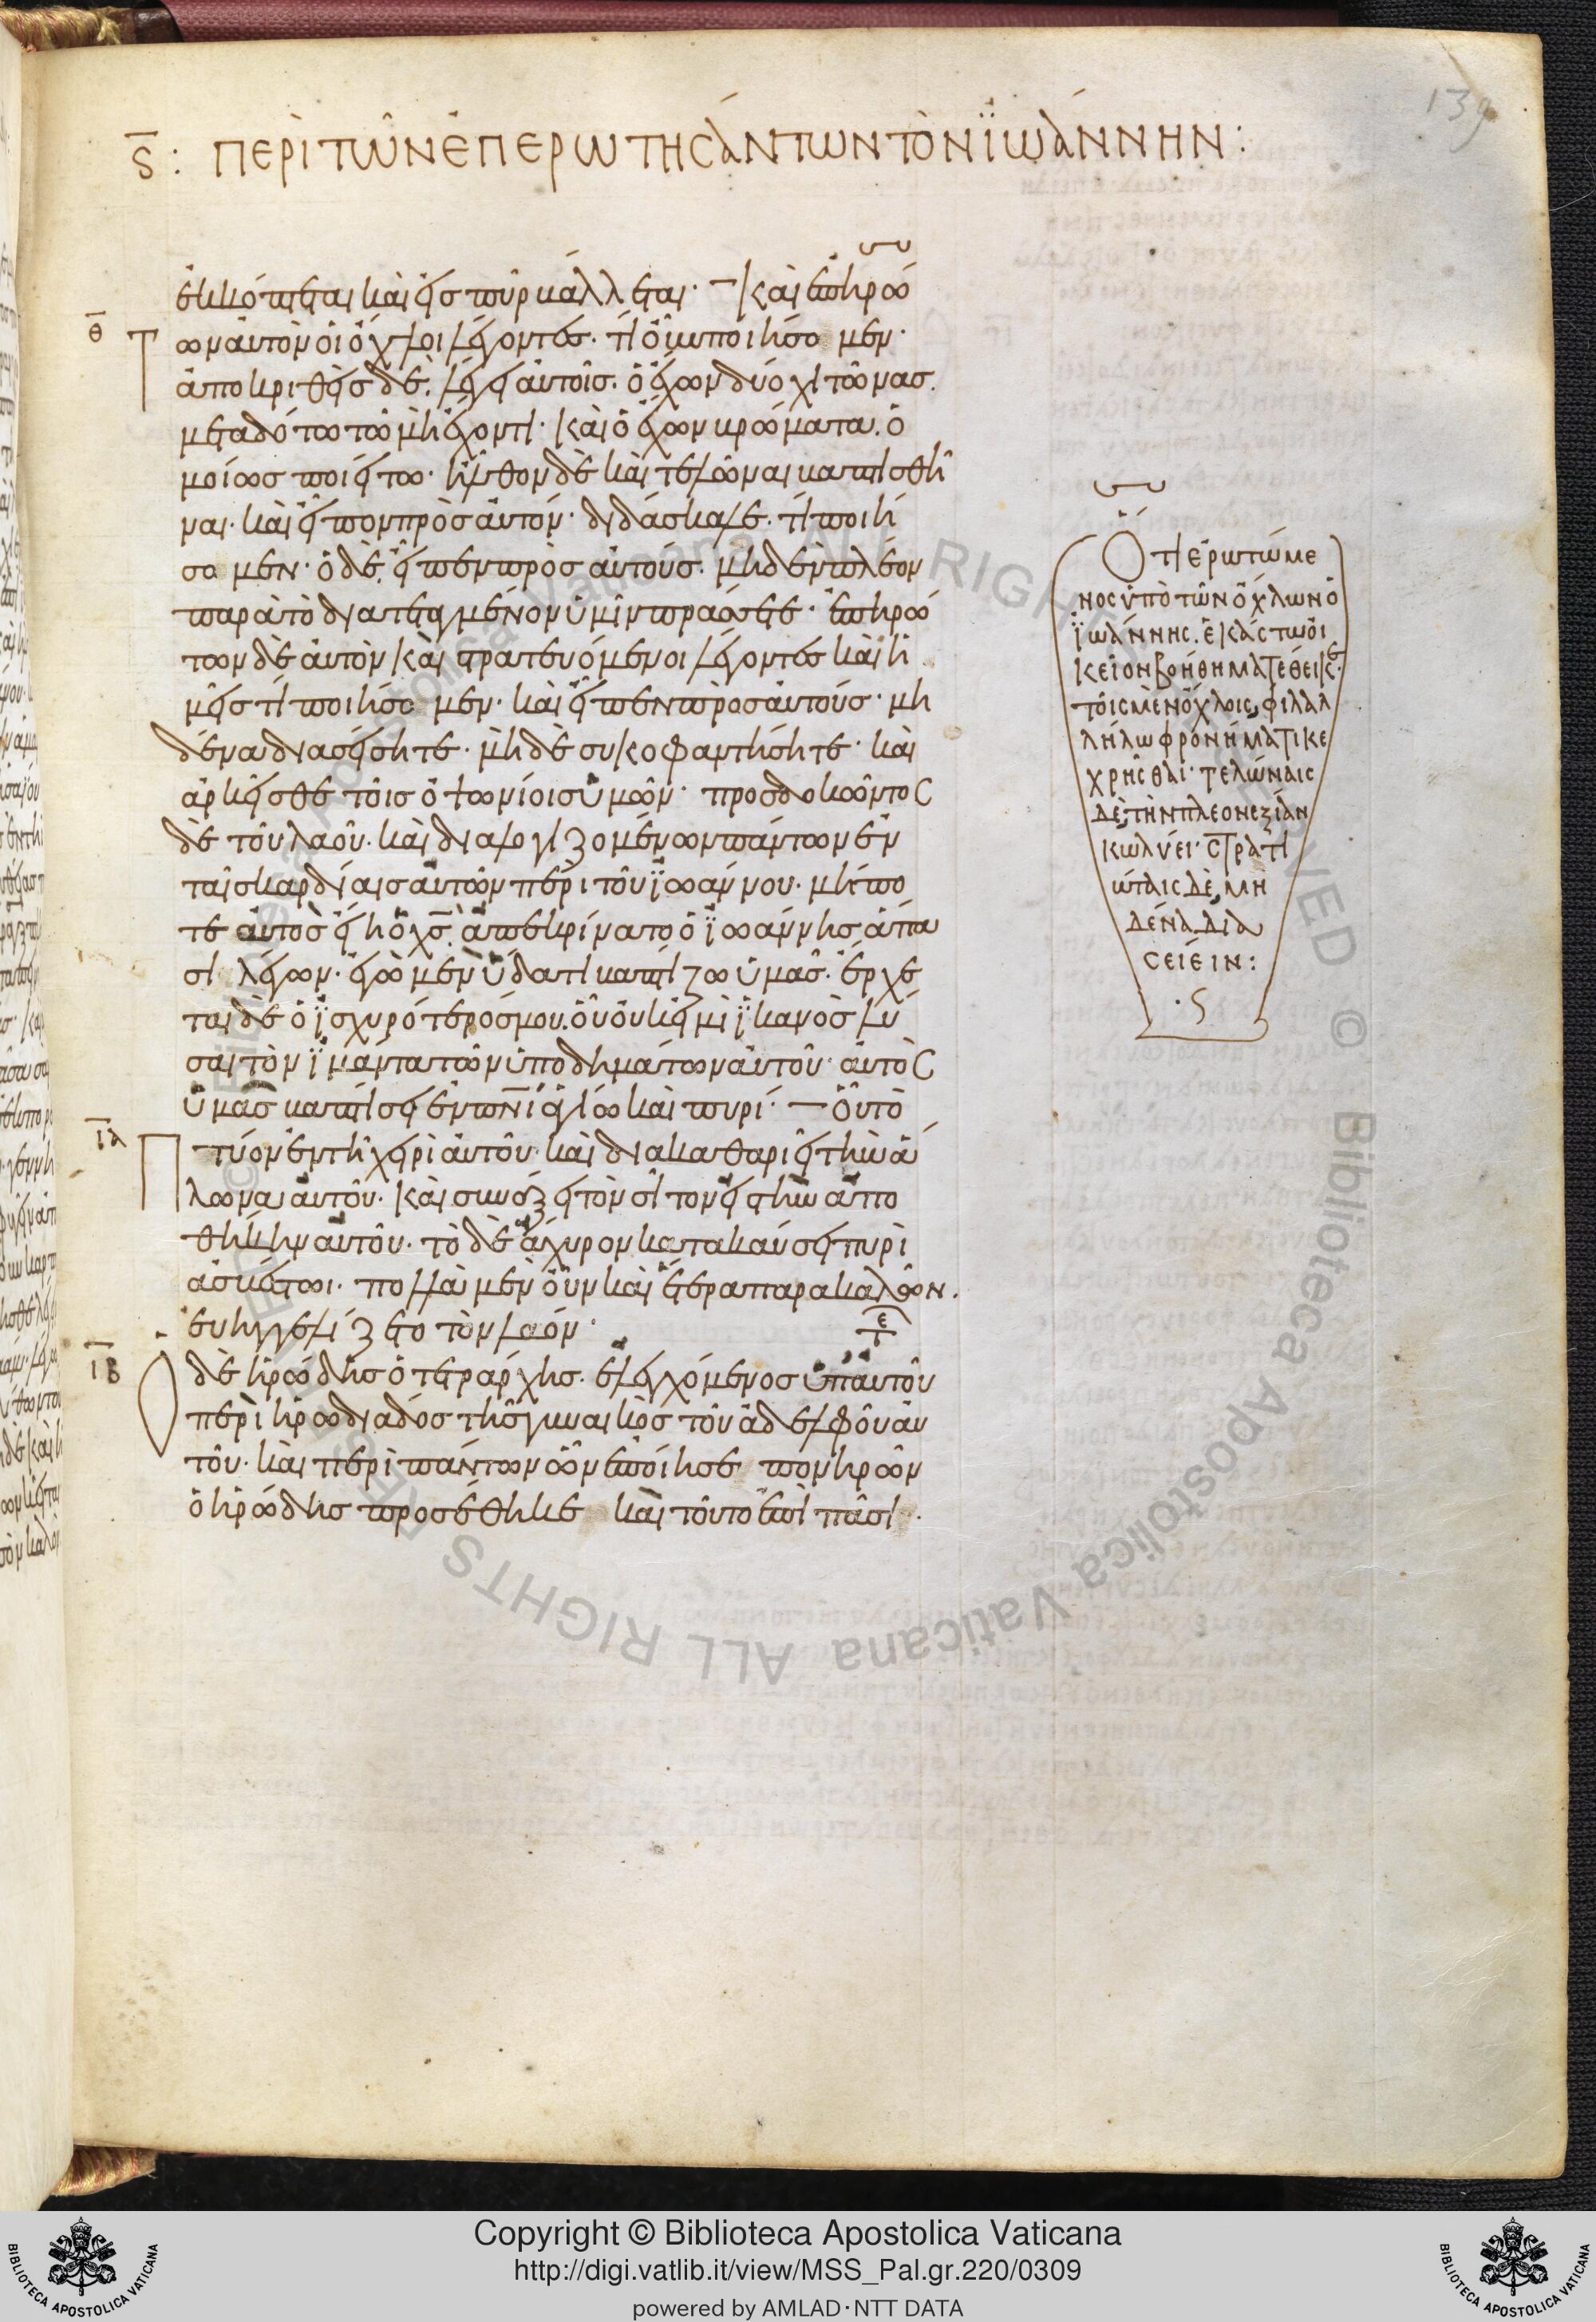 139
ς : περὶ τῶν ἐπερωτησάντων τὸν ϊωάννην :
ἐκκόπτεται καὶ εἰς πῦρ βάλλεται· – Καὶ ἐπηρώ
θ Των αὐτὸν οἱ ὄχλοι λέγοντες· τί οὖν ποιήσομεν·
ἀποκριθεὶς δὲ· λέγει αὐτοῖς· ὁ ἔχων δύο χιτῶνας.
μεταδότω τῶ μὴ ἔχοντι· Καὶ ὁ ἔχων βρώματα. ὁ
μοίως ποιείτω· ἦλθον δὲ καὶ τελῶναι βαπτισθῆ
ναι· καὶ εἶπον πρὸς αὐτόν· διδάσκαλε· τί ποιή
σομεν· ὁ δὲ, εἶπεν πρὸς αὐτούς· μηδὲν πλέον
παρὰ τὸ διατεταγμένον ὑμῖν πράσσετε· ἐπηρώ
των δὲ αὐτὸν Καὶ στρατευόμενοι λέγοντες καὶ ἡ
μεῖς τί ποιήσομεν· καὶ εἶπεν πρὸς αὐτούς· μη
δένα διασείσητε· μὴδὲ συκοφαντήσητε· καὶ
ἀρκεῖσθε τοῖς ὀψωνίοις ὑμῶν· προσδοκῶντος
δὲ τοῦ λαοῦ· καὶ διαλογιζομένων πάντων ἐν
ταῖς καρδίαις αὐτῶν περὶ τοῦ ϊωάννου· μήπο
τε αὐτὸς εἴη ὁ χς· ἀπεκρίνατο ὁ ϊωάννης ἅπα
σι λέγων· ἐγὼ μὲν ὕδατι βαπτίζω ὑμᾶς· ἔρχε
ται δὲ ὁ ϊσχυρότερός μου· οὗ οὐκ εἰμὶ ϊκανὸς λύ
σαι τὸν ϊμάντα τῶν ὑποδημάτων αὐτοῦ· αὐτὸς
ὑμᾶς βαπτίσει ἐν πνι ἁγίω καὶ πυρί· – Οὗ τὸ
ια Πτύον ἐν τῆ χειρὶ αὐτοῦ· καὶ διακαθαριεῖ τὴν ἅ
λωνα αὐτοῦ· Καὶ συνάξει τὸν σῖτον εἰς τὴν ἀπο
θήκην αὐτοῦ· τὸ δὲ ἄχυρον κατακαύσει πυρὶ
ἀσβέστωι· πολλὰ μὲν οὖν καὶ ἕτερα παρακαλῶν.
εὐηγγελίζετο τὸν λαόν·
ιβ Ὁ δὲ ἡρώδης ὁ τετράρχης· ἐλεγχόμενος ὑπ αὐτοῦ
περὶ ἡρωδιάδος τῆς γυναικὸς τοῦ ἀδελφοῦ αὐ
τοῦ· καὶ περὶ πάντων ὧν ἐποίησε πονηρῶν
ὁ ἡρώδης προσέθηκε καὶ τοῦτο ἐπὶ πᾶσι·
Ὅτι ἐρωτώμε
νος ὑπὸ τῶν ὄχλων ὁ
ϊωάννης. ἑκάστω οἰ
κεῖον βοήθημα τέθεικε·
τοῖς μὲν ὄχλοις, φιλαλ
λήλω φρονήματι κε
χρῆσθαι· τελώναις
δὲ, τὴν πλεονεξίαν
κωλύει· στρατι
ώταις δὲ, μη
δένα δια
σείειν :
· ς
Copyright © Biblioteca Apostolica Vaticana
http://digi.vatlib.it/view/MSS_Pal.gr.220/0309
powered by AMLAD·NTT DATA
BIBLIOTECA APOSTOLICA VATICANA
BIBLIOTECA APOSTOLICA VATICANA